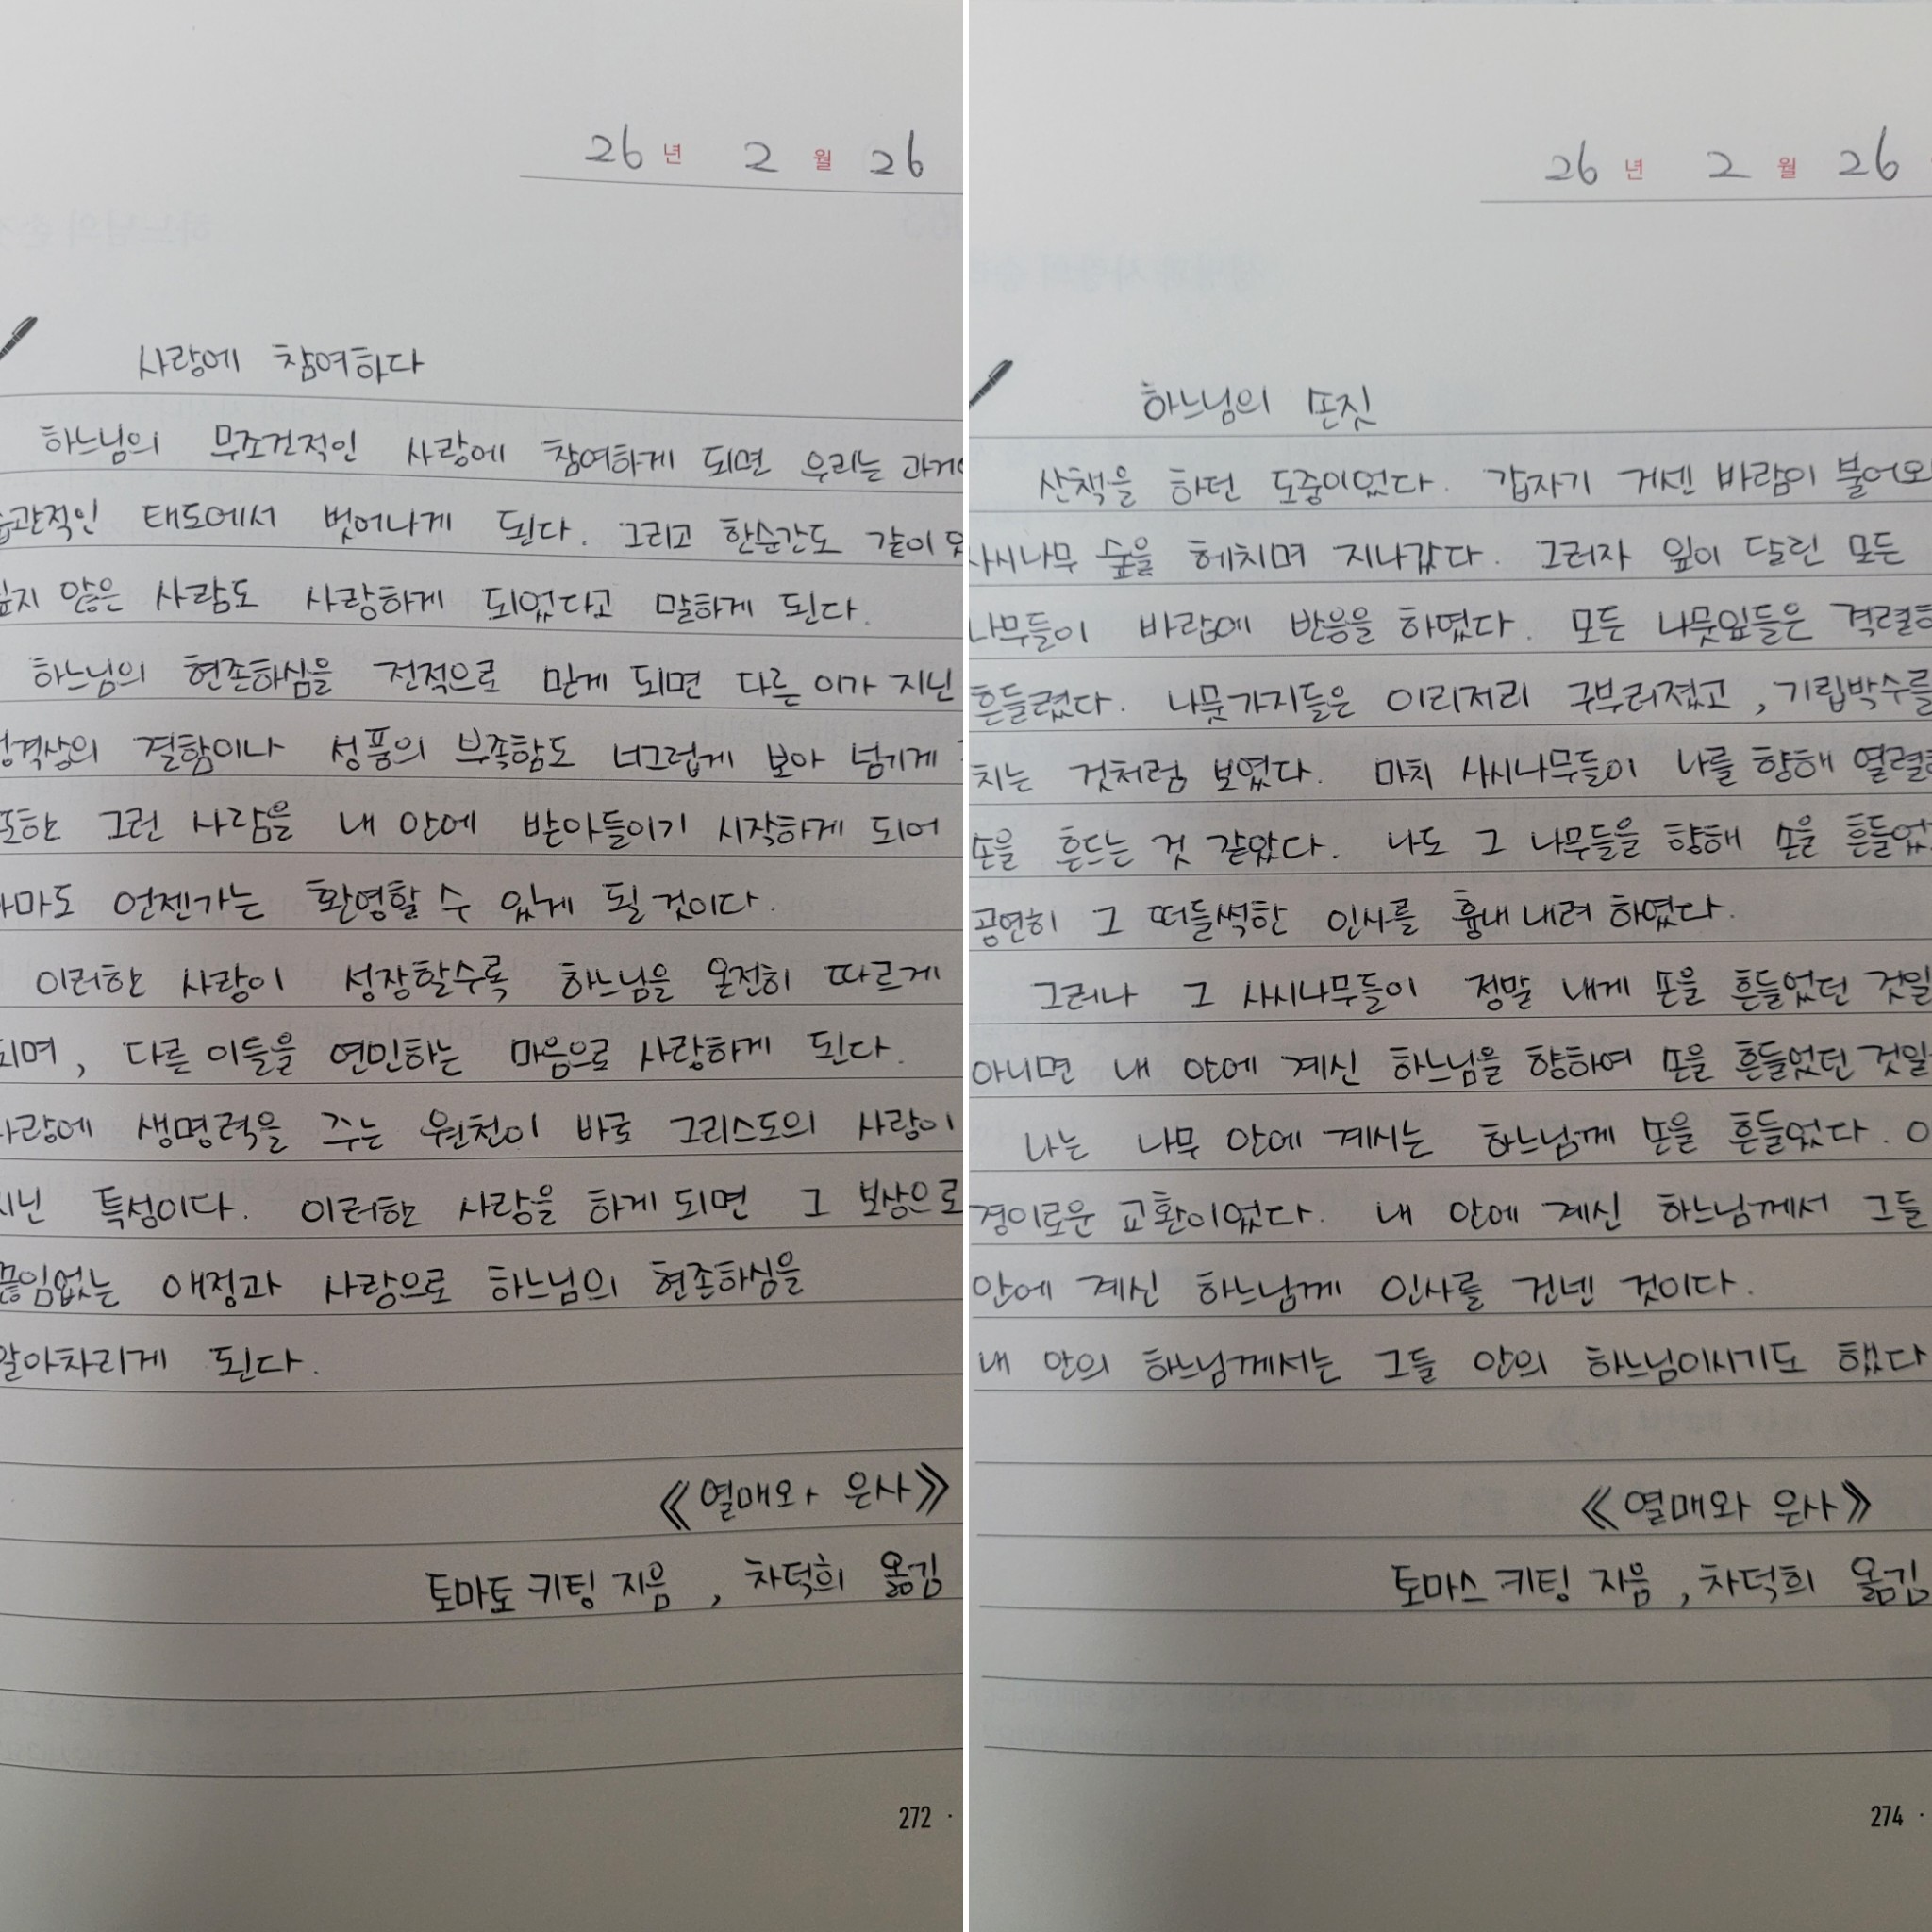 26 년 2 월 26
사랑에 참여하다
하느님의 무조건적인 사랑에 참여하게 되면 우리는
습관적인 태도에서 벗어나게 된다. 그리고 한순간도 같이
싶지 않은 사람도 사랑하게 되었다고 말하게 된다.
하느님의 현존하심을 전적으로 믿게 되면 다른 이가 지닌
성격상의 결함이나 성품의 부족함도 너그럽게 보아 넘기게
또한 그런 사람을 내 안에 받아들이기 시작하게 되어
아마도 언젠가는 환영할 수 있게 될 것이다.
이러한 사랑이 성장할수록 하느님을 온전히 따르게
되며, 다른 이들을 연민하는 마음으로 사랑하게 된다.
사랑에 생명력을 주는 원천이 바로 그리스도의 사랑이
지닌 특성이다. 이러한 사랑을 하게 되면 그 보상으로
끊임없는 애정과 사랑으로 하느님의 현존하심을
알아차리게 된다.
《열매와 은사》
토마토 키팅 지음, 차덕희 옮김
272
26 년 2 월 26
하느님의 손짓
산책을 하던 도중이었다. 갑자기 거센 바람이
사시나무 숲을 헤치며 지나갔다. 그러자 잎이 달린 모든
나무들이 바람에 반응을 하였다. 모든 나뭇잎들은
흔들렸다. 나뭇가지들은 이리저리 구부러졌고, 기립박수를
치는 것처럼 보였다. 마치 사시나무들이 나를 향해
손을 흔드는 것 같았다. 나도 그 나무들을 향해 손을
공연히 그 떠들썩한 인사를 흉내 내려 하였다.
그러나 그 사시나무들이 정말 내게 손을 흔들었던 것일
아니면 내 안에 계신 하느님을 향하여 손을 흔들었던 것일
나는 나무 안에 계시는 하느님께 손을 흔들었다.
경이로운 교환이었다. 내 안에 계신 하느님께서 그들
안에 계신 하느님께 인사를 건넨 것이다.
내 안의 하느님께서는 그들 안의 하느님이시기도 했다
《열매와 은사》
토마스 키팅 지음, 차덕희 옮김
274